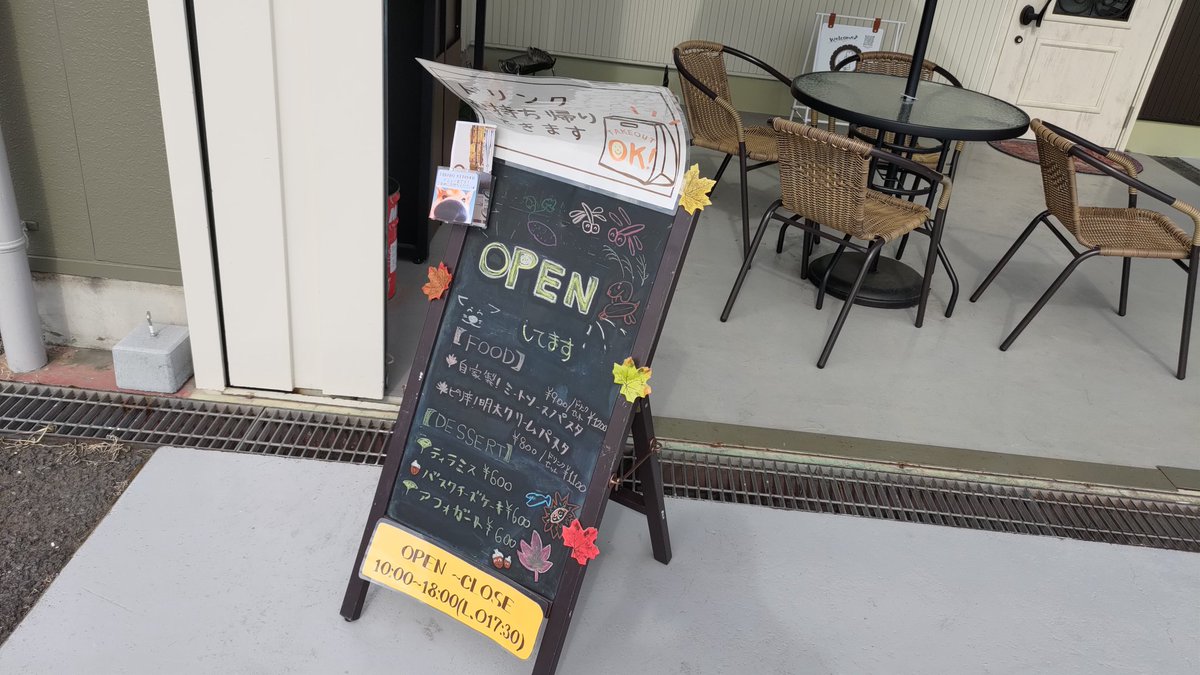 ドリンク
持ち帰り
できます
TAKEOUT
OK!
Welcome
OPEN
してます
【FOOD】
自家製!ミートソースパスタ
¥900/ドリンクセット¥1200
ピリ辛!明太クリームパスタ
¥800/ドリンクセット¥1100
【DESSERT】
ティラミス ¥600
バスクチーズケーキ ¥600
アフォガート ¥600
OPEN ~CLOSE
10:00~18:00(L,O17:30)